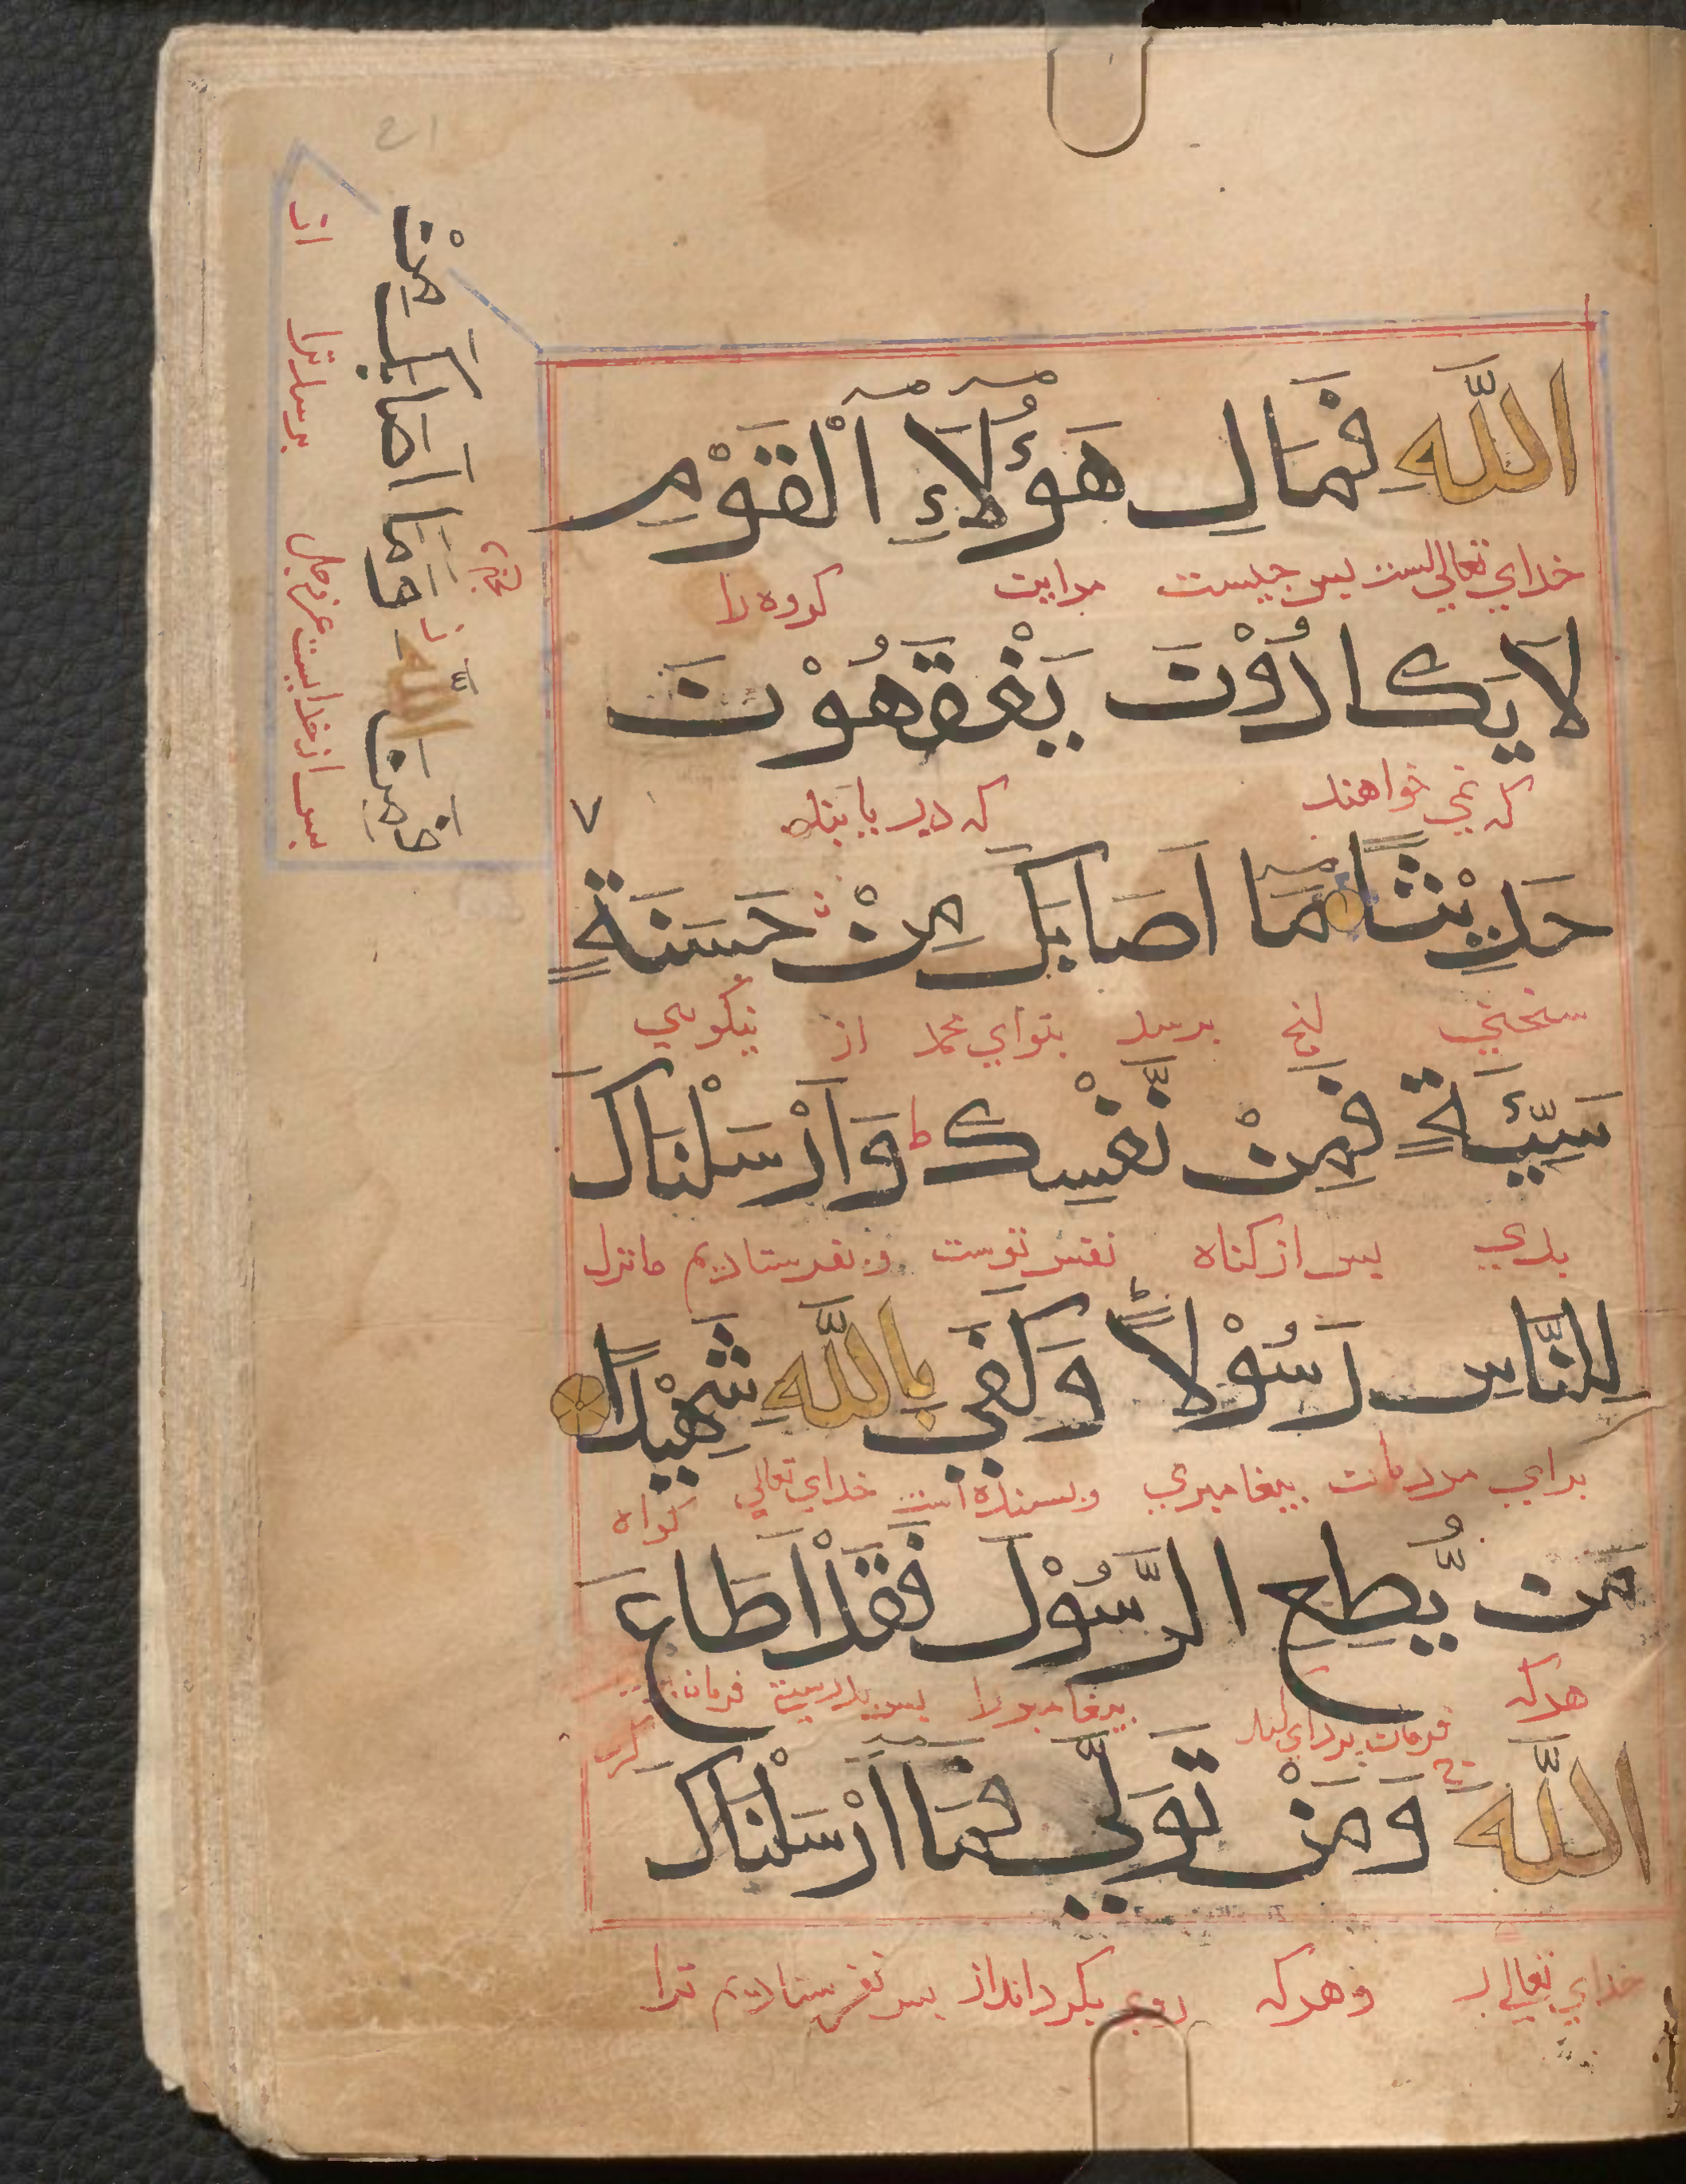 اللَّهِ فَمَالِ هَؤُلَاءِ الْقَوْمِ
خداي تعاليست پس چيست مراين گروه را
لَا يَكَادُوْنَ يَفْقَهُوْنَ
که نمي خواهند که دريابند
حَدِيْثًا مَا اَصَابَكَ مِنْ حَسَنَةٍ
سخني برسد بتواي محمد از نيکويي
سَيِّئَةٍ فَمِنْ نَّفْسِكَ ط وَاَرْسَلْنَاكَ
بدي پس از کناه نفس توست و بفرستاديم ماترا
لِلنَّاسِ رَسُوْلًا ط وَكَفَي بِاللَّهِ شَهِيْدًا
براي مردمان پيغامبري و بسنده است خداي تعالي گواه
مَن يُّطِعِ الرَّسُوْلَ فَقَدْ اَطَاعَ
هرکه فرمان برداري کند پيغامبر را پس بدرستي فرمان
اللَّهَ ج وَمَنْ تَوَلَّي فَمَا اَرْسَلْنَاكَ
خداي تعالي را و هرکه روي بگرداند از پس نفرستاديم ترا
فَمِنَ اللَّهِ ز وَمَا اَصَابَكَ مِنْ
پس از خدايست عز وجل برسد ترا از
21